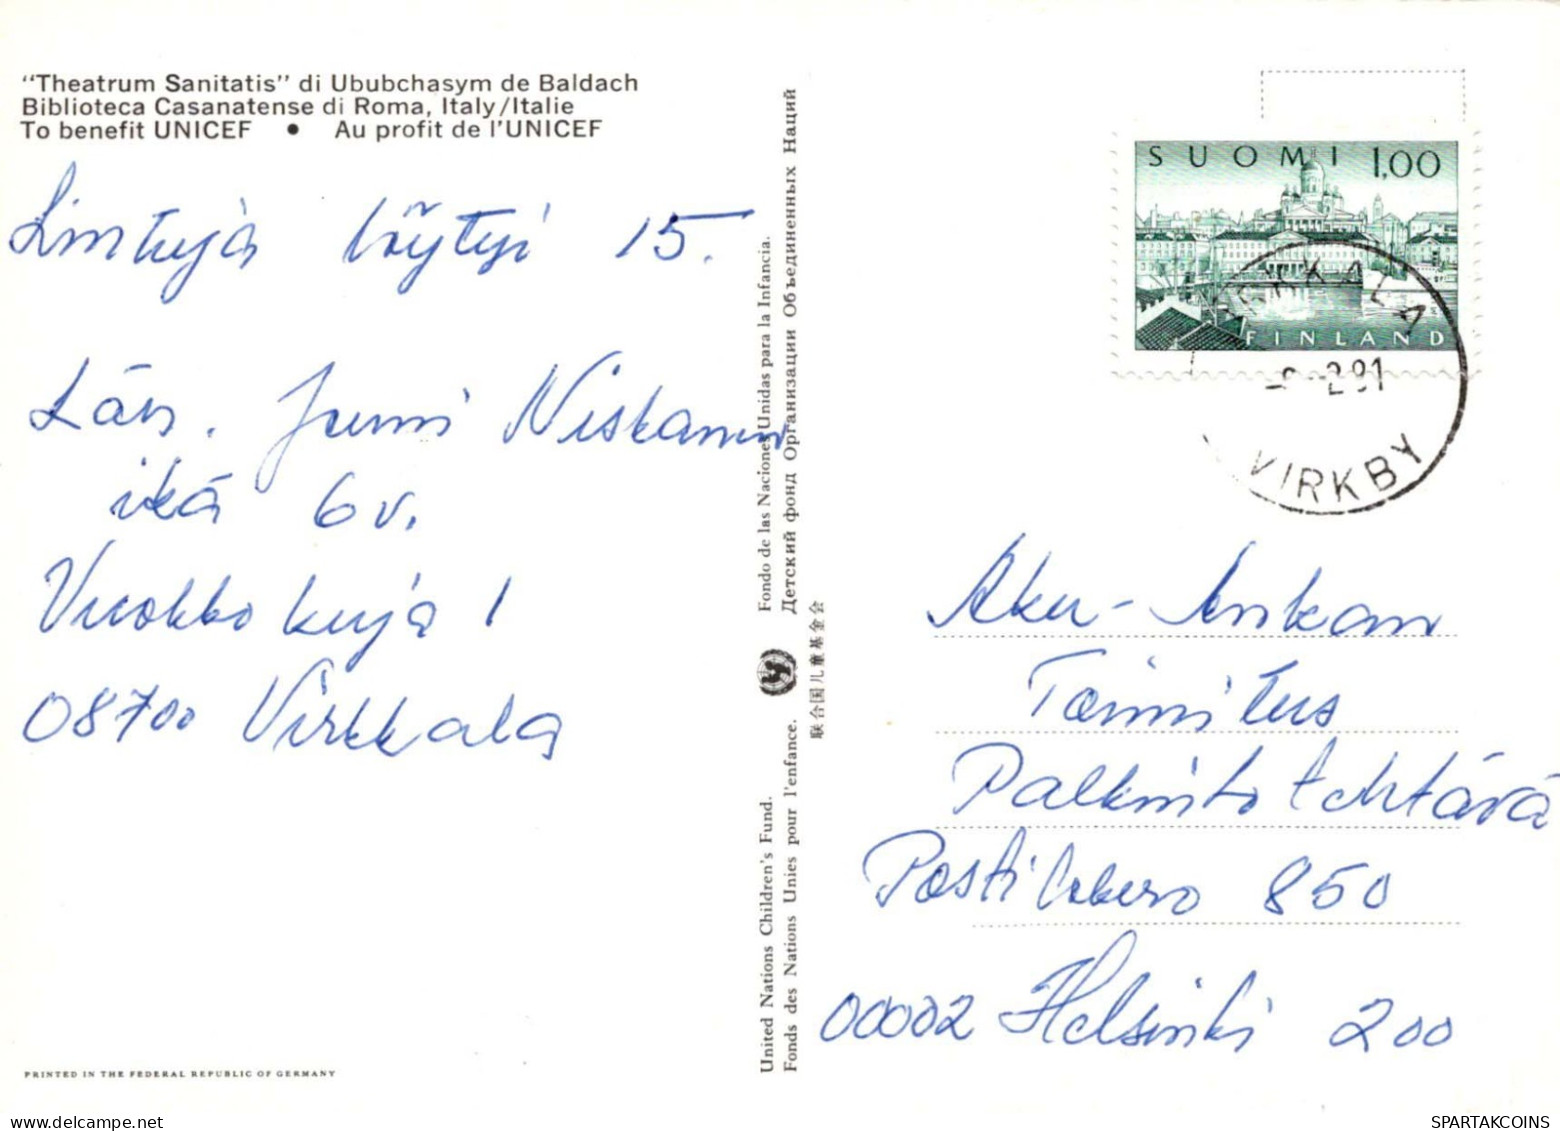 "Theatrum Sanitatis" di Ububchasym de Baldach
Biblioteca Casanatense di Roma, Italy/Italie
To benefit UNICEF • Au profit de l'UNICEF
Lintuja löytyi 15.
Läh. Jumi Niskanen
ikä 6 v.
Vuokkokuja 1
08700 Virkkala
PRINTED IN THE FEDERAL REPUBLIC OF GERMANY
United Nations Children's Fund. Fondo de las Naciones Unidas para la Infancia.
Fonds des Nations Unies pour l'enfance. Детский фонд Организации Объединенных Наций
联合国儿童基金会
SUOMI 1,00
FINLAND
VIRKKALA
2.91
VIRKBY
Aku-Ankan
Toimitus
Palkintotehtävä
Postilokero 850
00002 Helsinki 200
SPARTAKCOINS